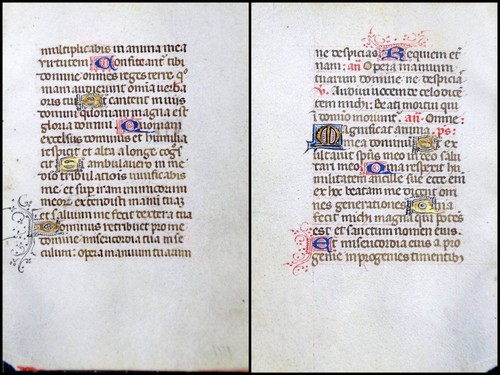 multiplicabis in anima mea
virtutem Confiteantur tibi
domine omnes reges terre q
audierunt omnia verba
oris tui Et cantent in viis
domini quoniam magna est
gloria domini Quoniam
excelsus dominus et humilia
respicit et alta a longe cog
cit Si ambulavero in me
dio tribulationis vivificabis
me et super iram inimicorum
meorum extendisti manum tua
et salvum me fecit dextera tua
Dominus retribuet pro me
domine misericordia tua in se
culum opera manuum tuarum
ne despicias Requiem et
nam an Opera manuum
tuarum domine ne despicia
v. Audivi vocem de celo dicē
tem michi Beati mortui qui
in domino moriunt an Omne
Magnificat anima ps
mea dominum Et ex
ultavit spūs meus in deo salu
tari meo Quia respexit hu
militatem ancille sue ecce eīm
ex hoc beatam me dicent om
nes generationes Quia
fecit michi magna qui potēs
est et sanctum nomen eius
Et misericordia eius a pro
genie in progenies timentib